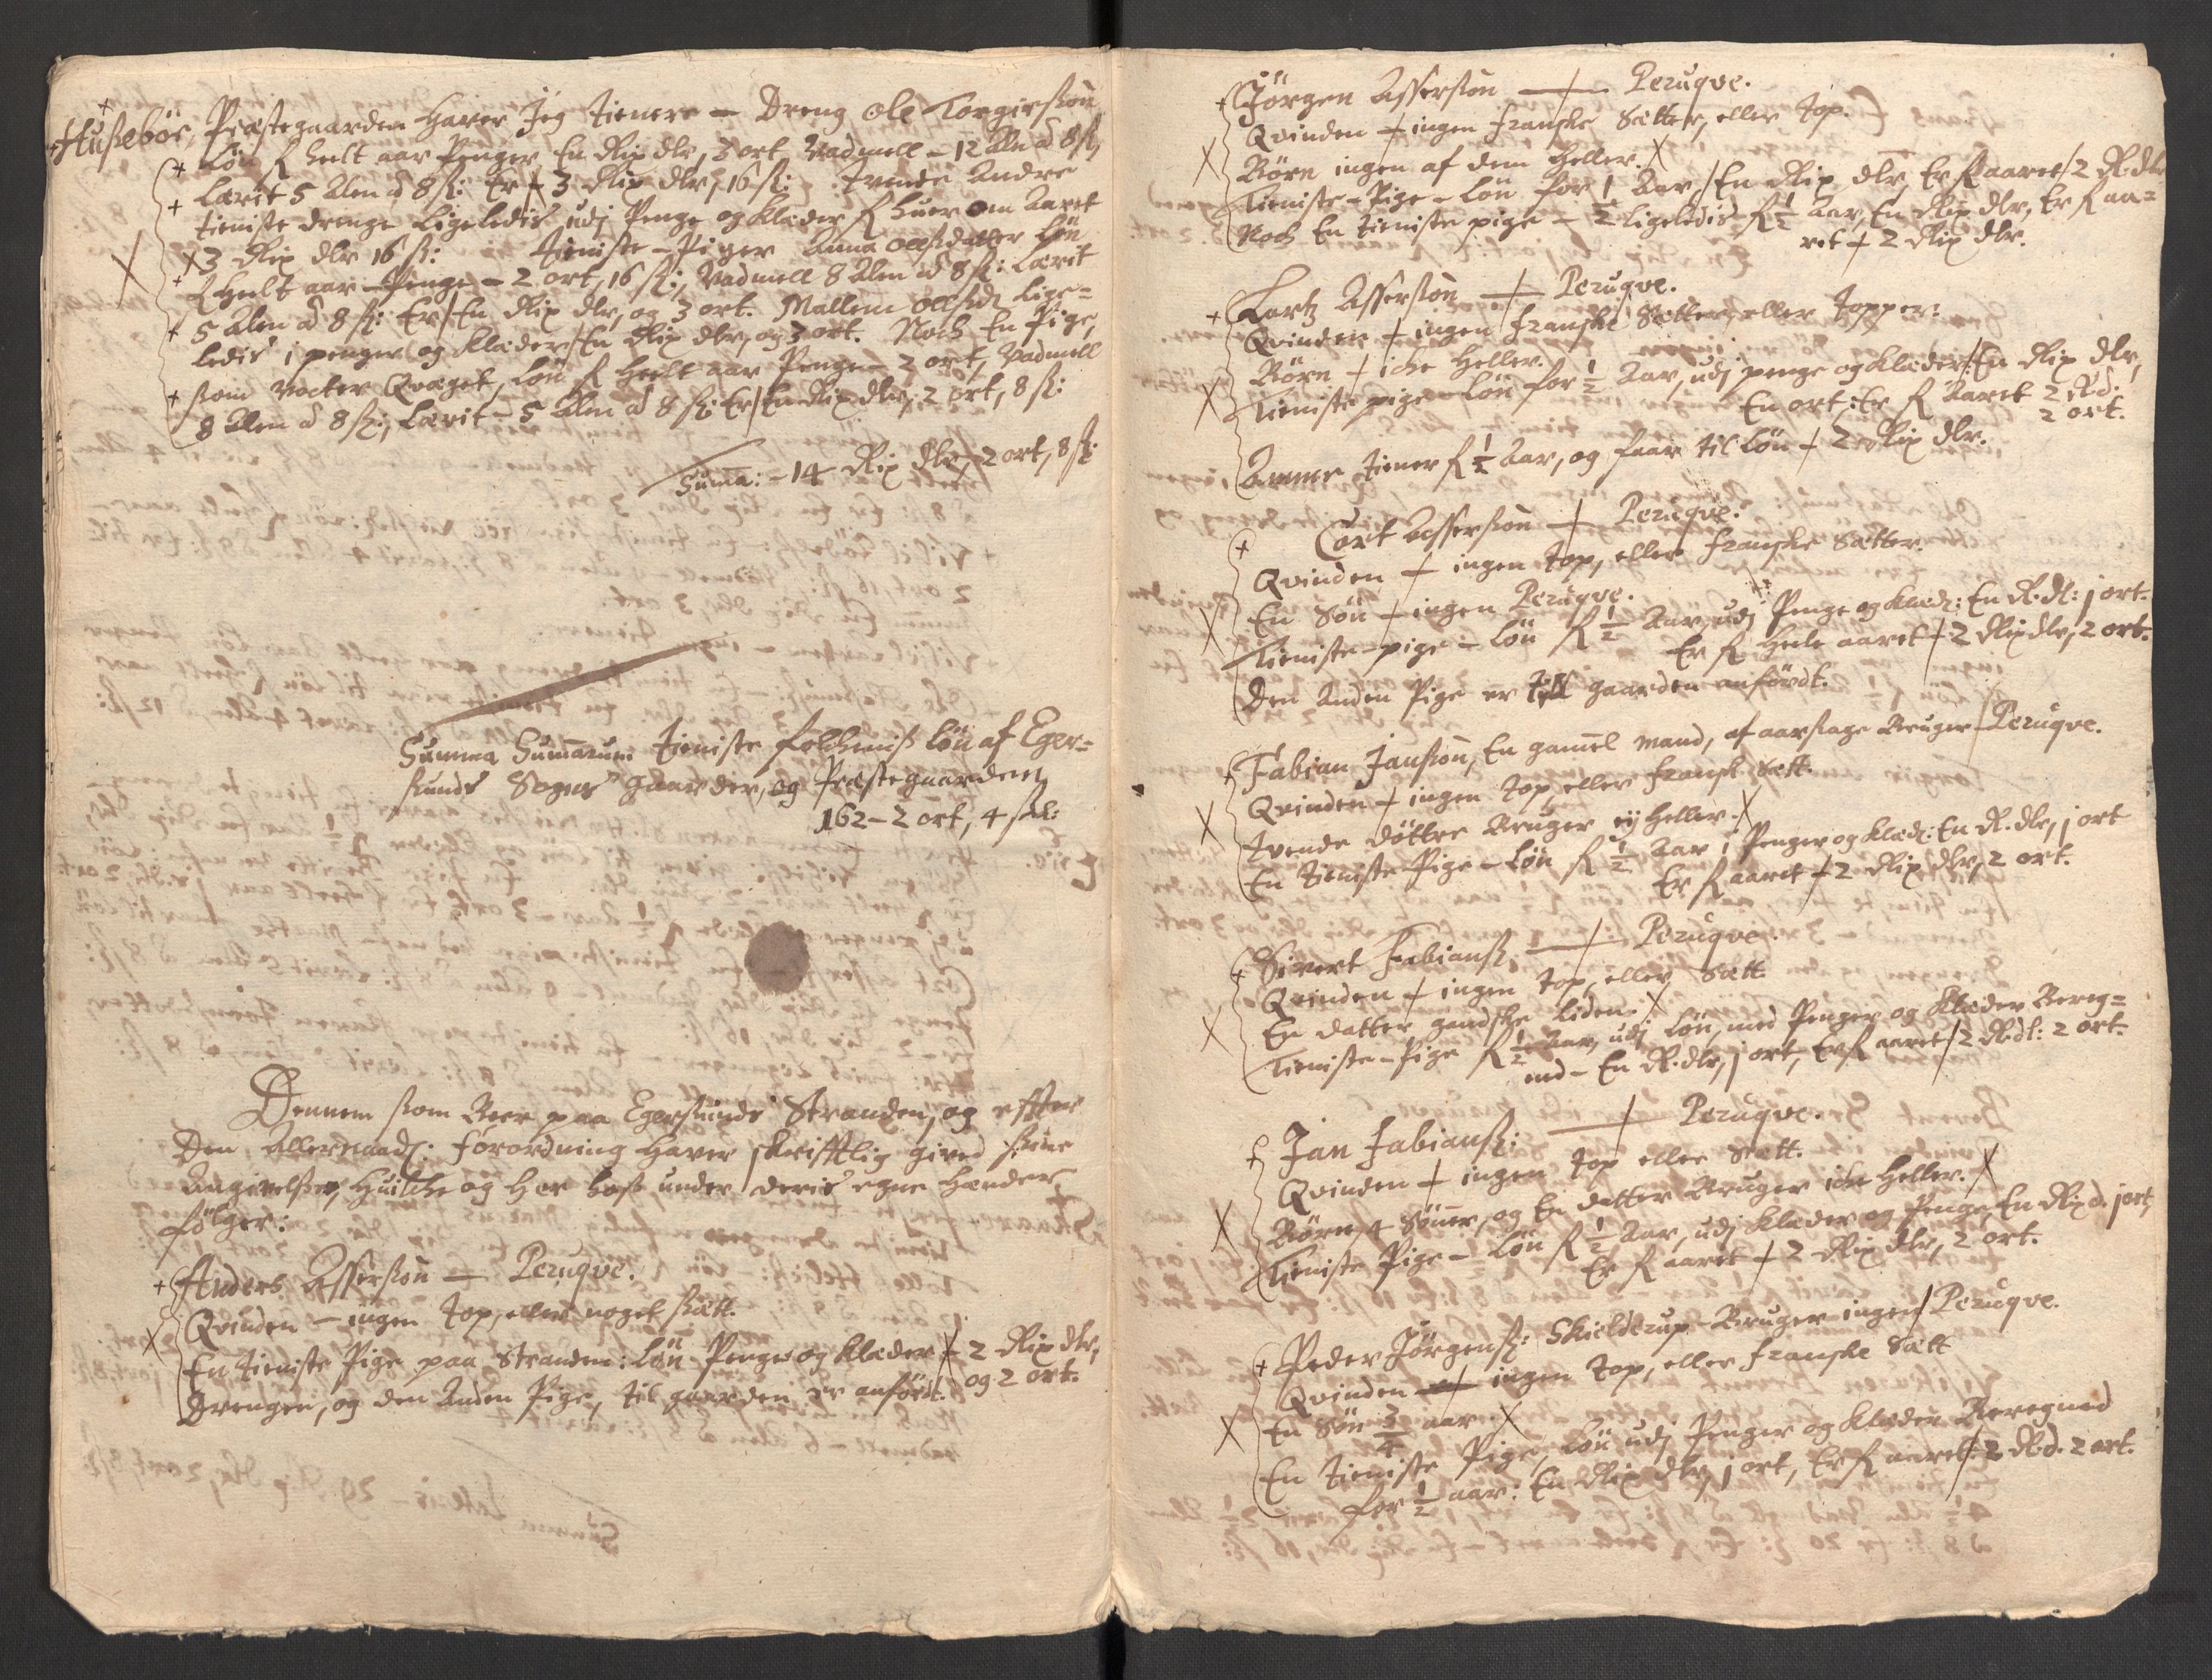 Hußeböe, Præstegaarden haver Jeg tienere – Dreng Ole Torgierßøn
Løn for heelt aar Penger En Rix dlr, 3 ort, Vadmell – 12 Alen à 8 ß,
Lærit 5 Alen à 8 ß: Er – 3 Rix dlr, 16 ß: tvende Andre
tieniste drenge ligeledis udj Penge og Klæder for huer om Aaret
3 Rix dlr 16 ß: tieniste – Piger Anna Olleßdatter Løn
for heelt aar – Penge – 2 ort, 16 ß:, Vadmell 8 Alen à 8 ß: Lærit
5 Alen à 8 ß: Er En Rix dlr, og 3 ort. Mallene Olleßdr lige=
ledis i penger og Klæder En Rix dlr, og 3 ort. Noch En Pige,
som vocter Qvæget, Løn for heelt aar Penge – 2 ort, Vadmell
8 Alen à 8 ß:, Lærit – 5 Alen à 8 ß: Er En Rix dlr, 2 ort, 8 ß:
Suma: – 14 Rix dlr, 2 ort, 8 ß:
Summa Summarum tieniste folcheniß løn af Eger=
sunds Sogns Gaarder, og Præstegaarden
162 – 2 ort, 4 skl:
Dennem som Boer paa Egersunds Stranden, og effter
Den Allernaadl: forordning haver skrifftlig gived sine
Angivelser, huilche og her hoß under deris egne hænder
følger:
Anders Asserßøn – Peruqve.
Qvinden – ingen Top, eller noget sætt.
En tieniste Pige paa Stranden: Løn Penge og Klæder – 2 Rix dlr,
og 2 ort.
Drengen, og den Anden Pige, til gaarden er anført.
Jørgen Asserßøn – Peruqve.
Qvinden – ingen Franske Sætter, eller Top.
Børn ingen af dem heller.
Tieniste – Pige – Løn for 1 Aar, En Rix dlr, Er for aaret 2 R. dlr
Noch En tieniste pige – ligeledis for ½ Aar, En Rix dlr, Er for aa=
ret – 2 Rix dlr.
Lartz Asserßøn – Peruqve.
Qvinden – ingen Franske Sætter, eller Topper:
Børn – iche heller.
Tieniste pige – Løn for ½ Aar, udj penge og Klæder: En Rix dlr,
En ort: Er for Aaret 2 Rd:
2 ort.
Amme tiener for ½ Aar, og faar til løn – 2 Rix dlr.
Cort Asserßøn – Peruqve.
Qvinden – ingen Top, eller Franske Sætter.
En Søn – ingen Peruqve.
Tieniste – pige – Løn for ½ Aar, udj Penge og Klæd: En R. dl: j ort.
Er for heele aaret – 2 Rix dlr, 2 ort.
Den Anden Pige er till gaarden anfördt.
Fabian Janßøn, En gamel Mand, af aarsage Bruger – Peruqve.
Qvinden – ingen Top eller Fransk Sætt.
Tvende Døttre Bruger ey heller.
En tieniste Pige – Løn for ½ Aar i Penger og Klæd: En R. dlr, j ort
Er for aaret – 2 Rix dlr, 2 ort.
Sivert Fabianß: – Peruqve.
Qvinden – ingen Top, eller Sætt
En datter gandske liden.
Tieniste – Pige for ½ Aar, udj Løn, med Penger og Klæder Bereg=
ned – En R. dlr, j ort, Er for aaret 2 R dl: 2 ort.
Jan Fabianß: – Peruqve.
Qvinden – ingen Top eller Sætt.
Børn 4 Sønner, og En datter Bruger iche heller.
Tieniste Pige – Løn for ½ Aar, udj Klæder og Penge, En Rix d. j ort,
Er for aaret – 2 Rix dlr, 2 ort.
Peder Jørgenß: Skielderup – Bruger ingen Peruqve.
Qvinden – ingen Top, eller Franske Sætt
En Søn 3/4 aar.
En tieniste Pige, Løn udj Penger og Klæder Beregned
for ½ aar: En Rix dlr, j ort, Er for aaret: 2 R. d. 2 ort.